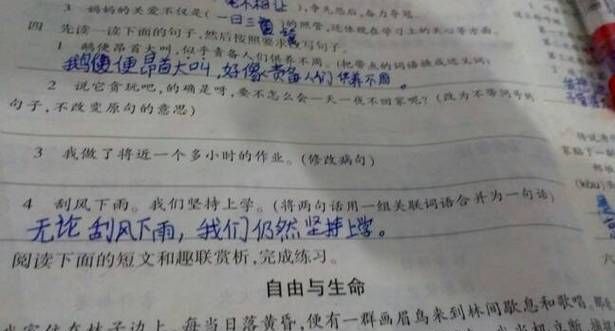 3 妈妈的关爱不仅是(一日三餐)的照管,还体现在学习上的关心等方面。
四 先读一读下面的句子,然后按照要求填写句子。
1 鹅便昂首大叫,似乎责备人们供养不周。(把带点的词语换成近义词)
鹅便便昂首大叫,好像责备人们供养不周。
2 说它贪玩吧,的确是呀,要不怎么会一天一夜不回家呢?(改为不带问号的
句子,不改变原句的意思)
3 我做了将近一个多小时的作业。(修改病句)
4 刮风下雨。我们坚持上学。(将两句话用一组关联词语合并为一句话)
无论刮风下雨,我们仍然坚持上学。
阅读下面的短文和趣联赏析,完成练习。
自由与生命
每当日落黄昏,便有一群画眉鸟来到林间歇息和歌唱。